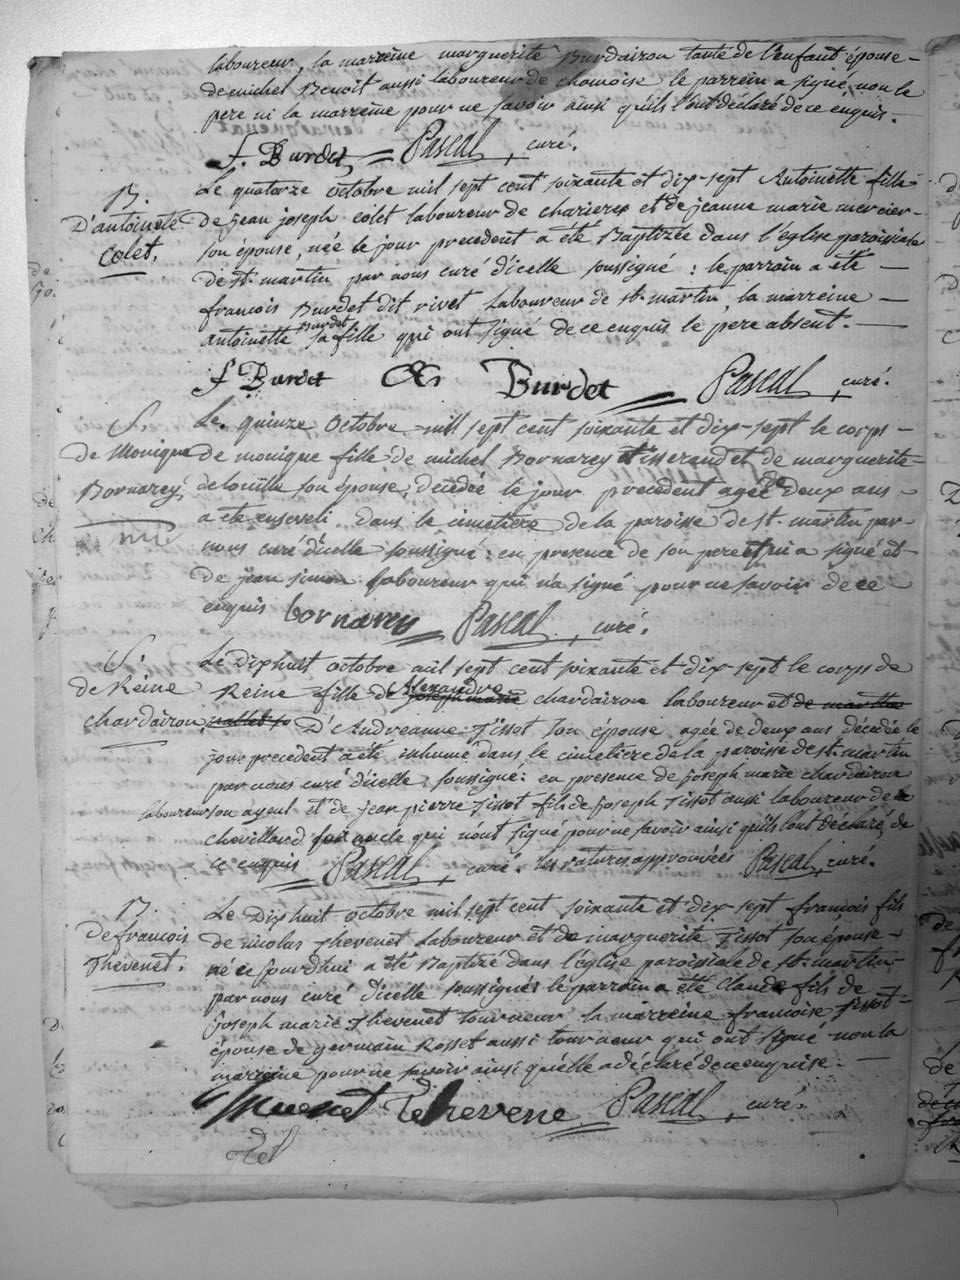 laboureur, la marreine marguerite Burdairon tante de l'enfant épouse
de michel Benoit aussi laboureur de chamoise le parrein a signé, non le
pere ni la marreine pour ne savoir ainsi qu'ils l'ont déclaré de ce enquis.
f. Burdet Pascal, curé.
B.
D'antoinette
Colet.
Le quatorze octobre mil sept cent soixante et dix-sept Antoinette fille
de jean joseph colet laboureur de charieres et de jeanne marie mercier
son épouse, née le jour precedent a été Baptizée dans l'eglise paroissiale
de st. martin par nous curé d'icelle soussigné : le parrain a été
françois Burdet dit rivet Laboureur de st. martin la marreine
antoinette Burdet sa fille qui ont signé de ce enquis le pere absent.
f Burdet Burdet Pascal, curé.
S.
de Monique
Bornarey,
Le quinze octobre mill sept cent soixante et dix-sept le corps
de monique fille de michel Bornarey tisserand et de marguerite
delouille son épouse, décédée le jour precedent agée deux ans
a été enseveli dans le cimetiere de la paroisse de st. martin par
nous curé d'icelle soussigné : en presence de son pere qui a signé et
de jean simon laboureur qui n'a signé pour ne savoir de ce
enquis bornarey Pascal, curé.
S.
de Reine
chardairon,
Le dixhuit octobre mil sept cent soixante et dix-sept le corps de
Reine fille de Alexandre joseph marie chardairon laboureur et de
D'Andreanne Tissot son épouse agée de deux ans décédée le
jour precedent a été inhumé dans le cimetiere de la paroisse de st. martin
par nous curé d'icelle soussigné : en presence de joseph marie chardairon
laboureur son ayeul et de jean pierre Tissot fils de joseph Tissot aussi laboureur de
chevillard son oncle qui n'ont signé pour ne savoir ainsi qu'ils l'ont déclaré, de
ce enquis Pascal, curé. les ratures approuvées Pascal, curé.
B.
de françois
Thevenet.
Le Dixhuit octobre mil sept cent soixante et dix sept françois fils
de nicolas Thevenet Laboureur et de marguerite Tissot son épouse
né ce jourd'hui a été Baptizé dans l'église paroissiale de st. martin
par nous curé d'icelle soussigné : le parrain a été Claude fils de
joseph marie Thevenet tourneur la marreine françoise Tissot
épouse de germain Rosset aussi tourneur qui ont signé non la
marreine pour ne savoir ainsi qu'elle a déclaré de ce enquise.
Thevenet Pascal, curé.